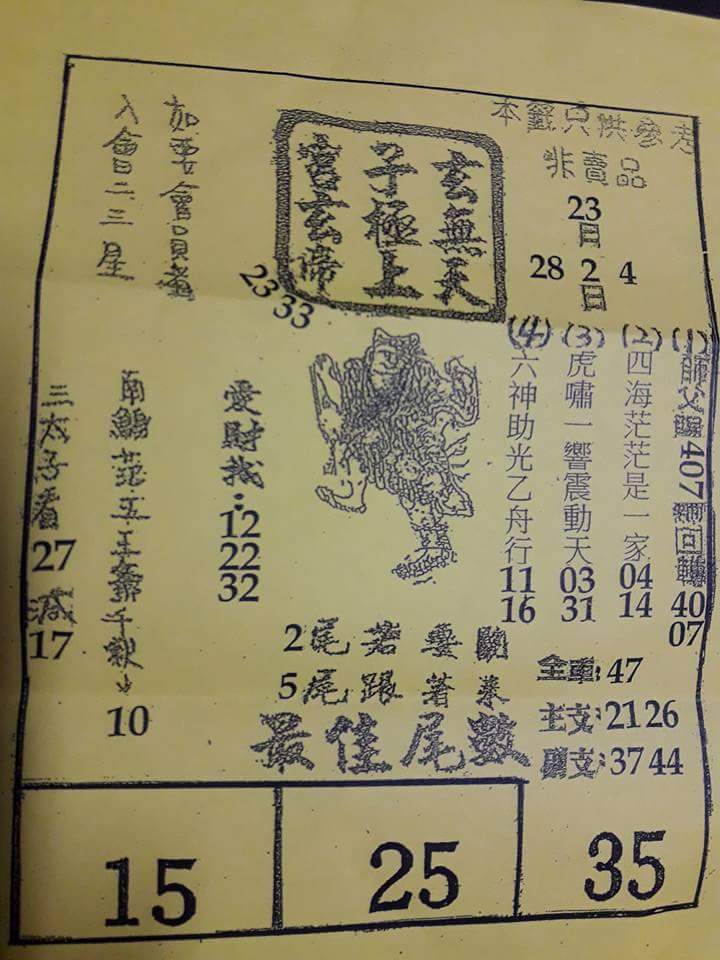 本籤只供參考
非賣品
23
日
28 2 4
日
玄無天
子極上
宮玄帝
23 33
如要會員號
入會二三星
(1)
師父
407
回
40
07
(2)
四海茫茫是一家
04
14
(3)
虎嘯一響震動天
03
31
(4)
六神助光乙舟行
11
16
愛財找
12
22
32
南鯤
五王
千歲
10
三太子看
27
減
17
2尾若要開
5尾跟著來
最佳尾數
全車:47
主支:21 26
支:37 44
15
25
35